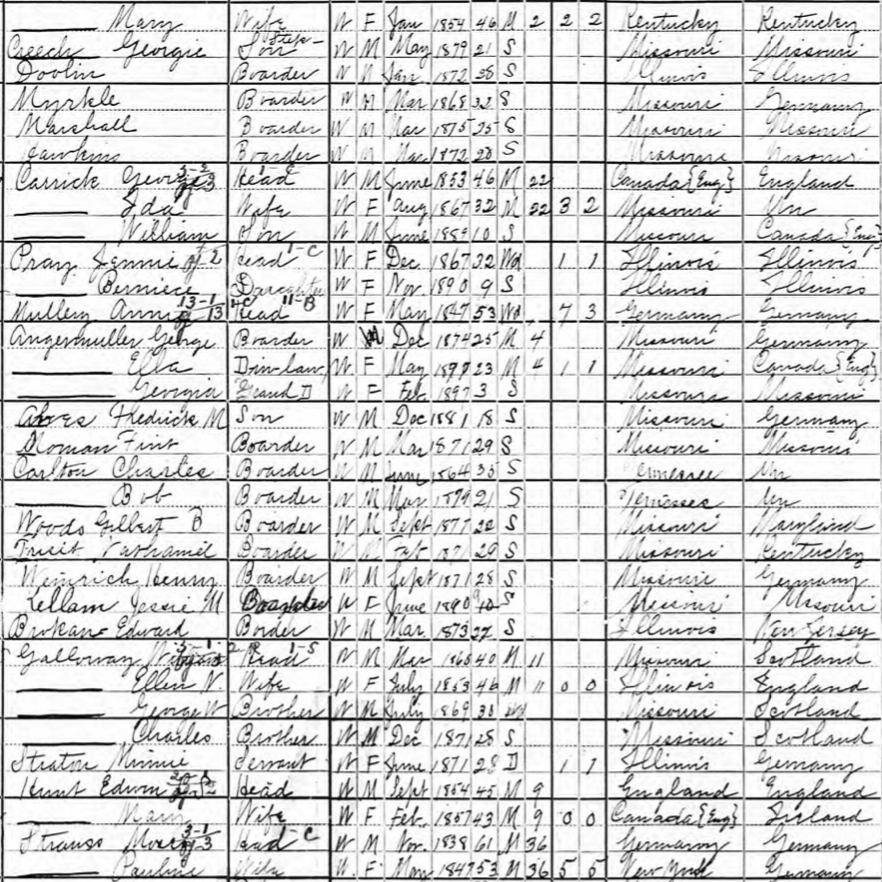 —— Mary Wife W F Jan 1854 46 M 2 2 2 Kentucky Kentucky
Creech Georgie Step-Son W M May 1879 21 S Missouri Missouri
Doolin Boarder W M Jan 1872 28 S Illinois Illinois
Myrkle Boarder W M Mar 1868 32 S Missouri Germany
Marshall Boarder W M Mar 1875 25 S Missouri Missouri
Hawkins Boarder W M 1872 28 S Missouri Missouri
Carrick George Head W M June 1853 46 M 22 Canada {Eng} England
—— Ida Wife W F Aug 1867 32 M 22 3 2 Missouri Un
—— William Son W M June 1889 10 S Missouri Canada {Eng}
Pray Jennie Head 1-C W F Dec 1867 32 Wd 1 1 Illinois Illinois
—— Berniece Daughter W F Nov 1890 9 S Illinois Illinois
Mullery 13-1 Head 11-B W F 1847 53 Wd 7 3 Germany Germany
Angermuller George Boarder W M Dec 1874 25 M 4 Missouri Germany
—— Ella D in-law W F May 23 M 4 1 1 Missouri Canada {Eng}
—— Georgia Grand D W F Feb 1897 3 S Missouri Missouri
Fredrick M Son W M Dec 1881 18 S Missouri Germany
Boarder W M Mar 1871 29 S Missouri Missouri
Carlton Charles Boarder W M June 1864 35 S Tennessee Un
—— Bob Boarder W M Mar 1879 21 S Tennessee Un
Woods Gilbert B Boarder W M Sept 1877 22 S Missouri Maryland
Nathaniel Boarder W M 1871 29 S Missouri Kentucky
Weinrich Henry Boarder W M Sept 1871 28 S Missouri Germany
Kellam Jessie M Boarder W F June 1890 S Missouri Missouri
Brokaw Edward Border W M Mar 1873 27 S Illinois New Jersey
Galloway Head 1-5 W M Mar 1860 40 M 11 Missouri Scotland
—— Ellen N. Wife W F July 1853 46 M 11 0 0 Illinois England
—— George W Brother W M July 1869 30 Missouri Scotland
—— Charles Brother W M Dec 1871 28 S Missouri Scotland
Straton Minnie Servant W F June 1871 28 D 1 1 Illinois Germany
Hunt Edwin Head W M Sept 1854 45 M 9 England England
—— Mary Wife W F Feb. 1857 43 M 9 0 0 Canada {Eng} Ireland
Strauss 3-1 Head C W M Nov. 1838 61 M 36 Germany Germany
—— Pauline Wife W. F 1847 53 M 36 5 5 New York Germany